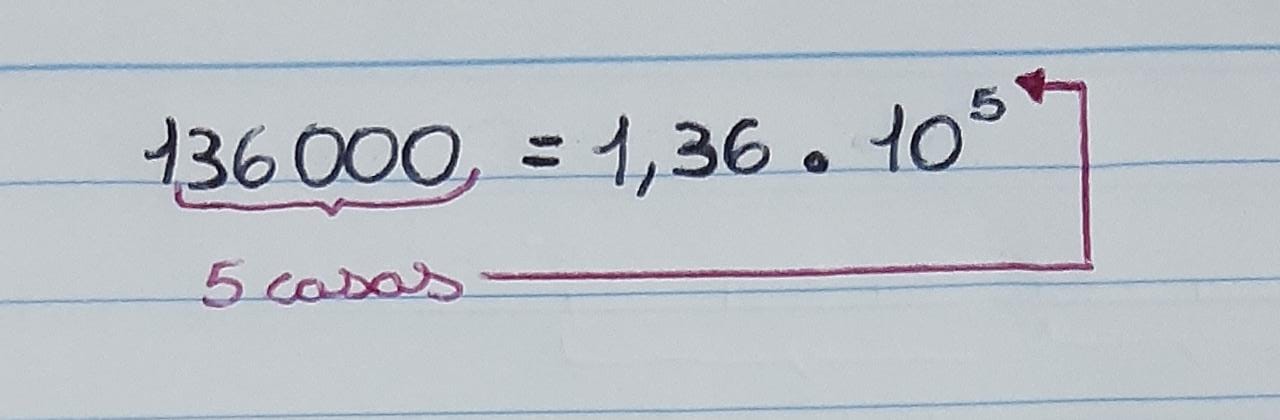 136000, = 1,36 . 10⁵
5 casas